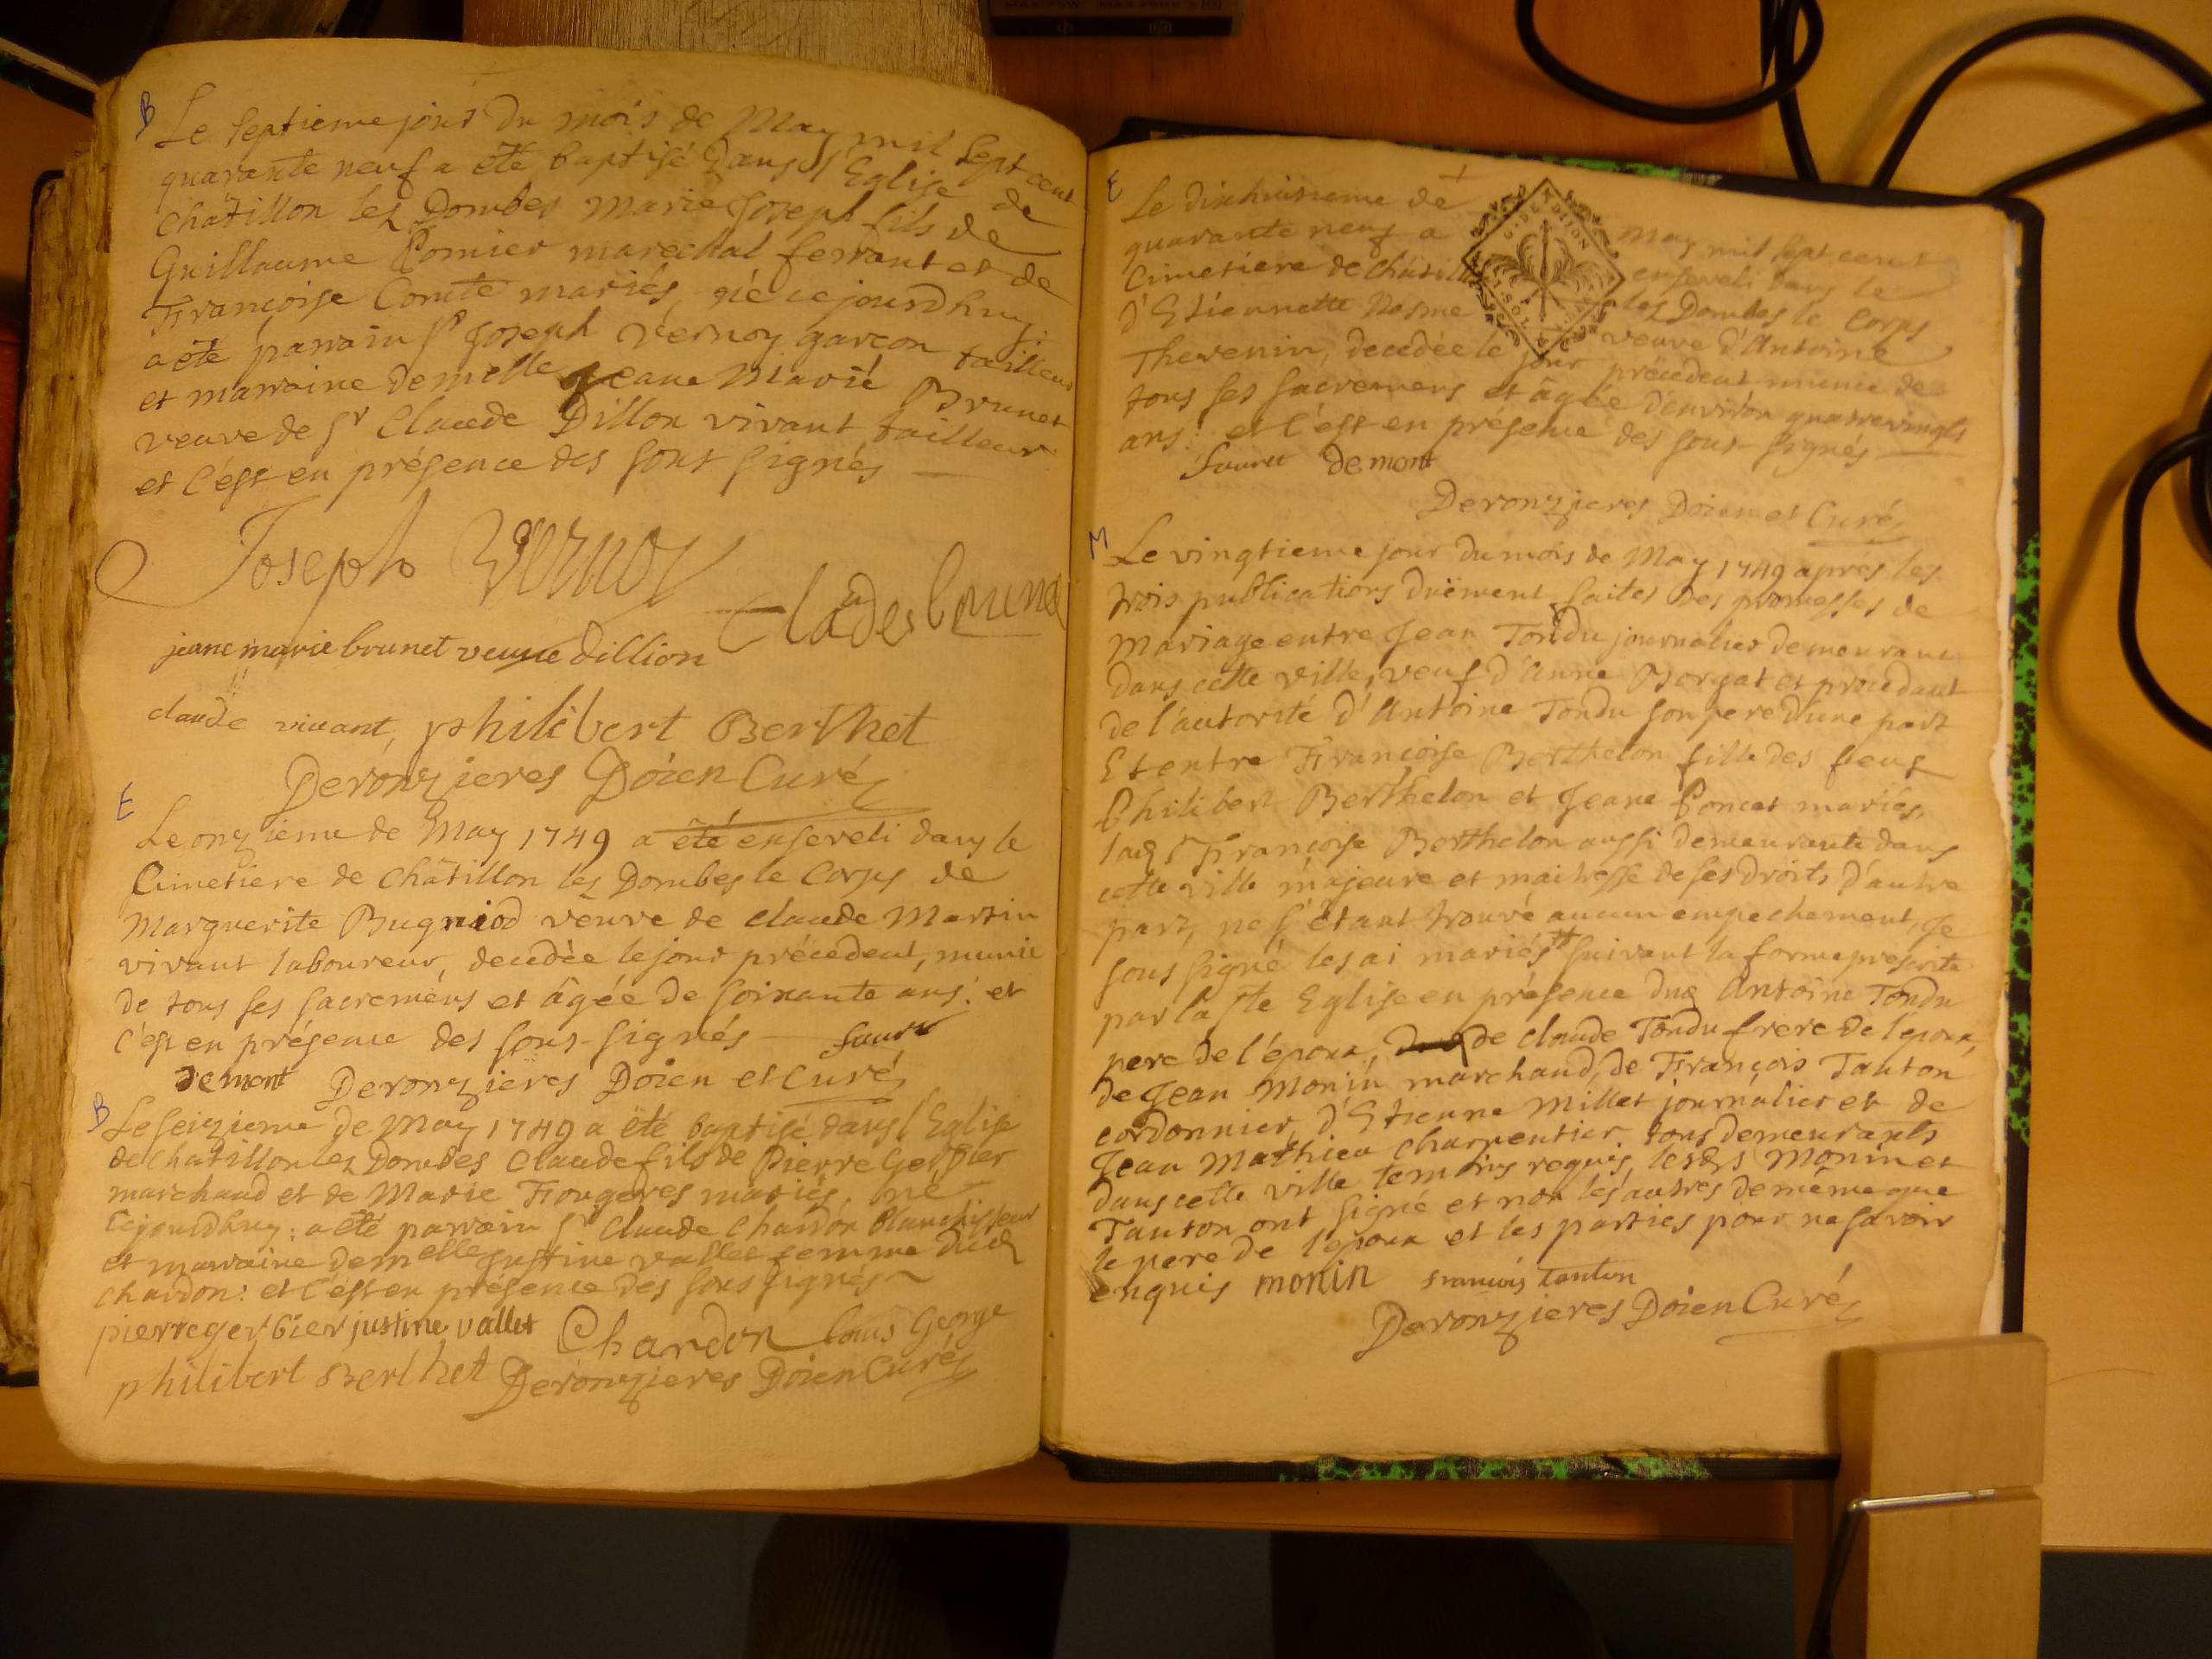 B
Le septieme jour du mois de May mil sept cent
quarante neuf a été baptisé dans l'Eglise de
Châtillon les Dombes Marie Joseph fils de
Guillaume Pomier marechal ferrant et de
Françoise Comte mariés, né ce jourdhuy:
a été parrain Sr Joseph Vernoy garçon tailleur
et marraine demelle Jeane Marie Brunet
veuve de Sr Claude Dillon vivant tailleur
et c'est en présence des sous signés
Joseph Vernoy
jeane marie brunet veuve dillion
claude vivant, philibert Berthet
Deronzieres Doien Curé
E
Le onzieme de May 1749 a été enseveli dans le
Cimetiere de Châtillon lès Dombes le Corps de
Marguerite Bugniod veuve de Claude Martin
vivant laboureur, decedée le jour précedent, munie
de tous ses sacremens et âgée de soixante ans: et
c'est en présence des sous-signés
demont Deronzieres Doien et Curé
B
Le seizieme de May 1749 a été baptisé dans l'Eglise
de Chatillon les Dombes Claude fils de Pierre Gerbier
marchand et de Marie Fiougeres mariés, né
cejourdhuy: a été parrain Sr Claude Chardon Blanchisseur
et marraine demelle Justine vallet femme dud
Chardon: et c'est en présence des sous signés
pierre gerbier justine vallet Chardon louis George
philibert Berthet Deronzieres Doien Curé
E
Le dixhuitieme de May mil sept cent
quarante neuf a enseveli dans le
Cimetiere de Châtill les Dombes le Corps
d'Etiennette Nesme veuve d'Antoine
Thevenin, decedée le jour précedent munie de
tous ses sacremens et âgée d'environ quatrevingts
ans: et c'est en présence des sous-signés
demont
Deronzieres Doien et Curé
M
Le vingtieme jour du mois de May 1749 après les
trois publications duëment faites des promesses de
mariage entre Jean Tondu journalier demeurant
dans cette ville, veuf d'Anne Borgat et procedant
de l'autorité d'Antoine Tondu son pere d'une part
Et entre Françoise Berthelon fille des feus
Philibert Berthelon et Jeane Poncet mariés,
lad Françoise Berthelon aussi demeurante dans
cette ville majeure et maitresse de ses droits d'autre
part, ne s'étant trouvé aucun empechement, Je
sous signé les ai mariés suivant la forme prescrite
par la ste Eglise en présence dud Antoine Tondu
pere de l'époux, de claude Tondu frere de l'époux,
de Jean Monin marchand, de François Tauton
cordonnier, d'Etienne Millet journalier et de
Jean Mathieu Charpentier, tous demeurants
dans cette ville temoins requis, lesds Monin et
Tauton ont signé et non les autres de même que
le pere de l'epoux et les parties pour ne savoir
enquis monin francois tauton
Deronzieres Doien Curé